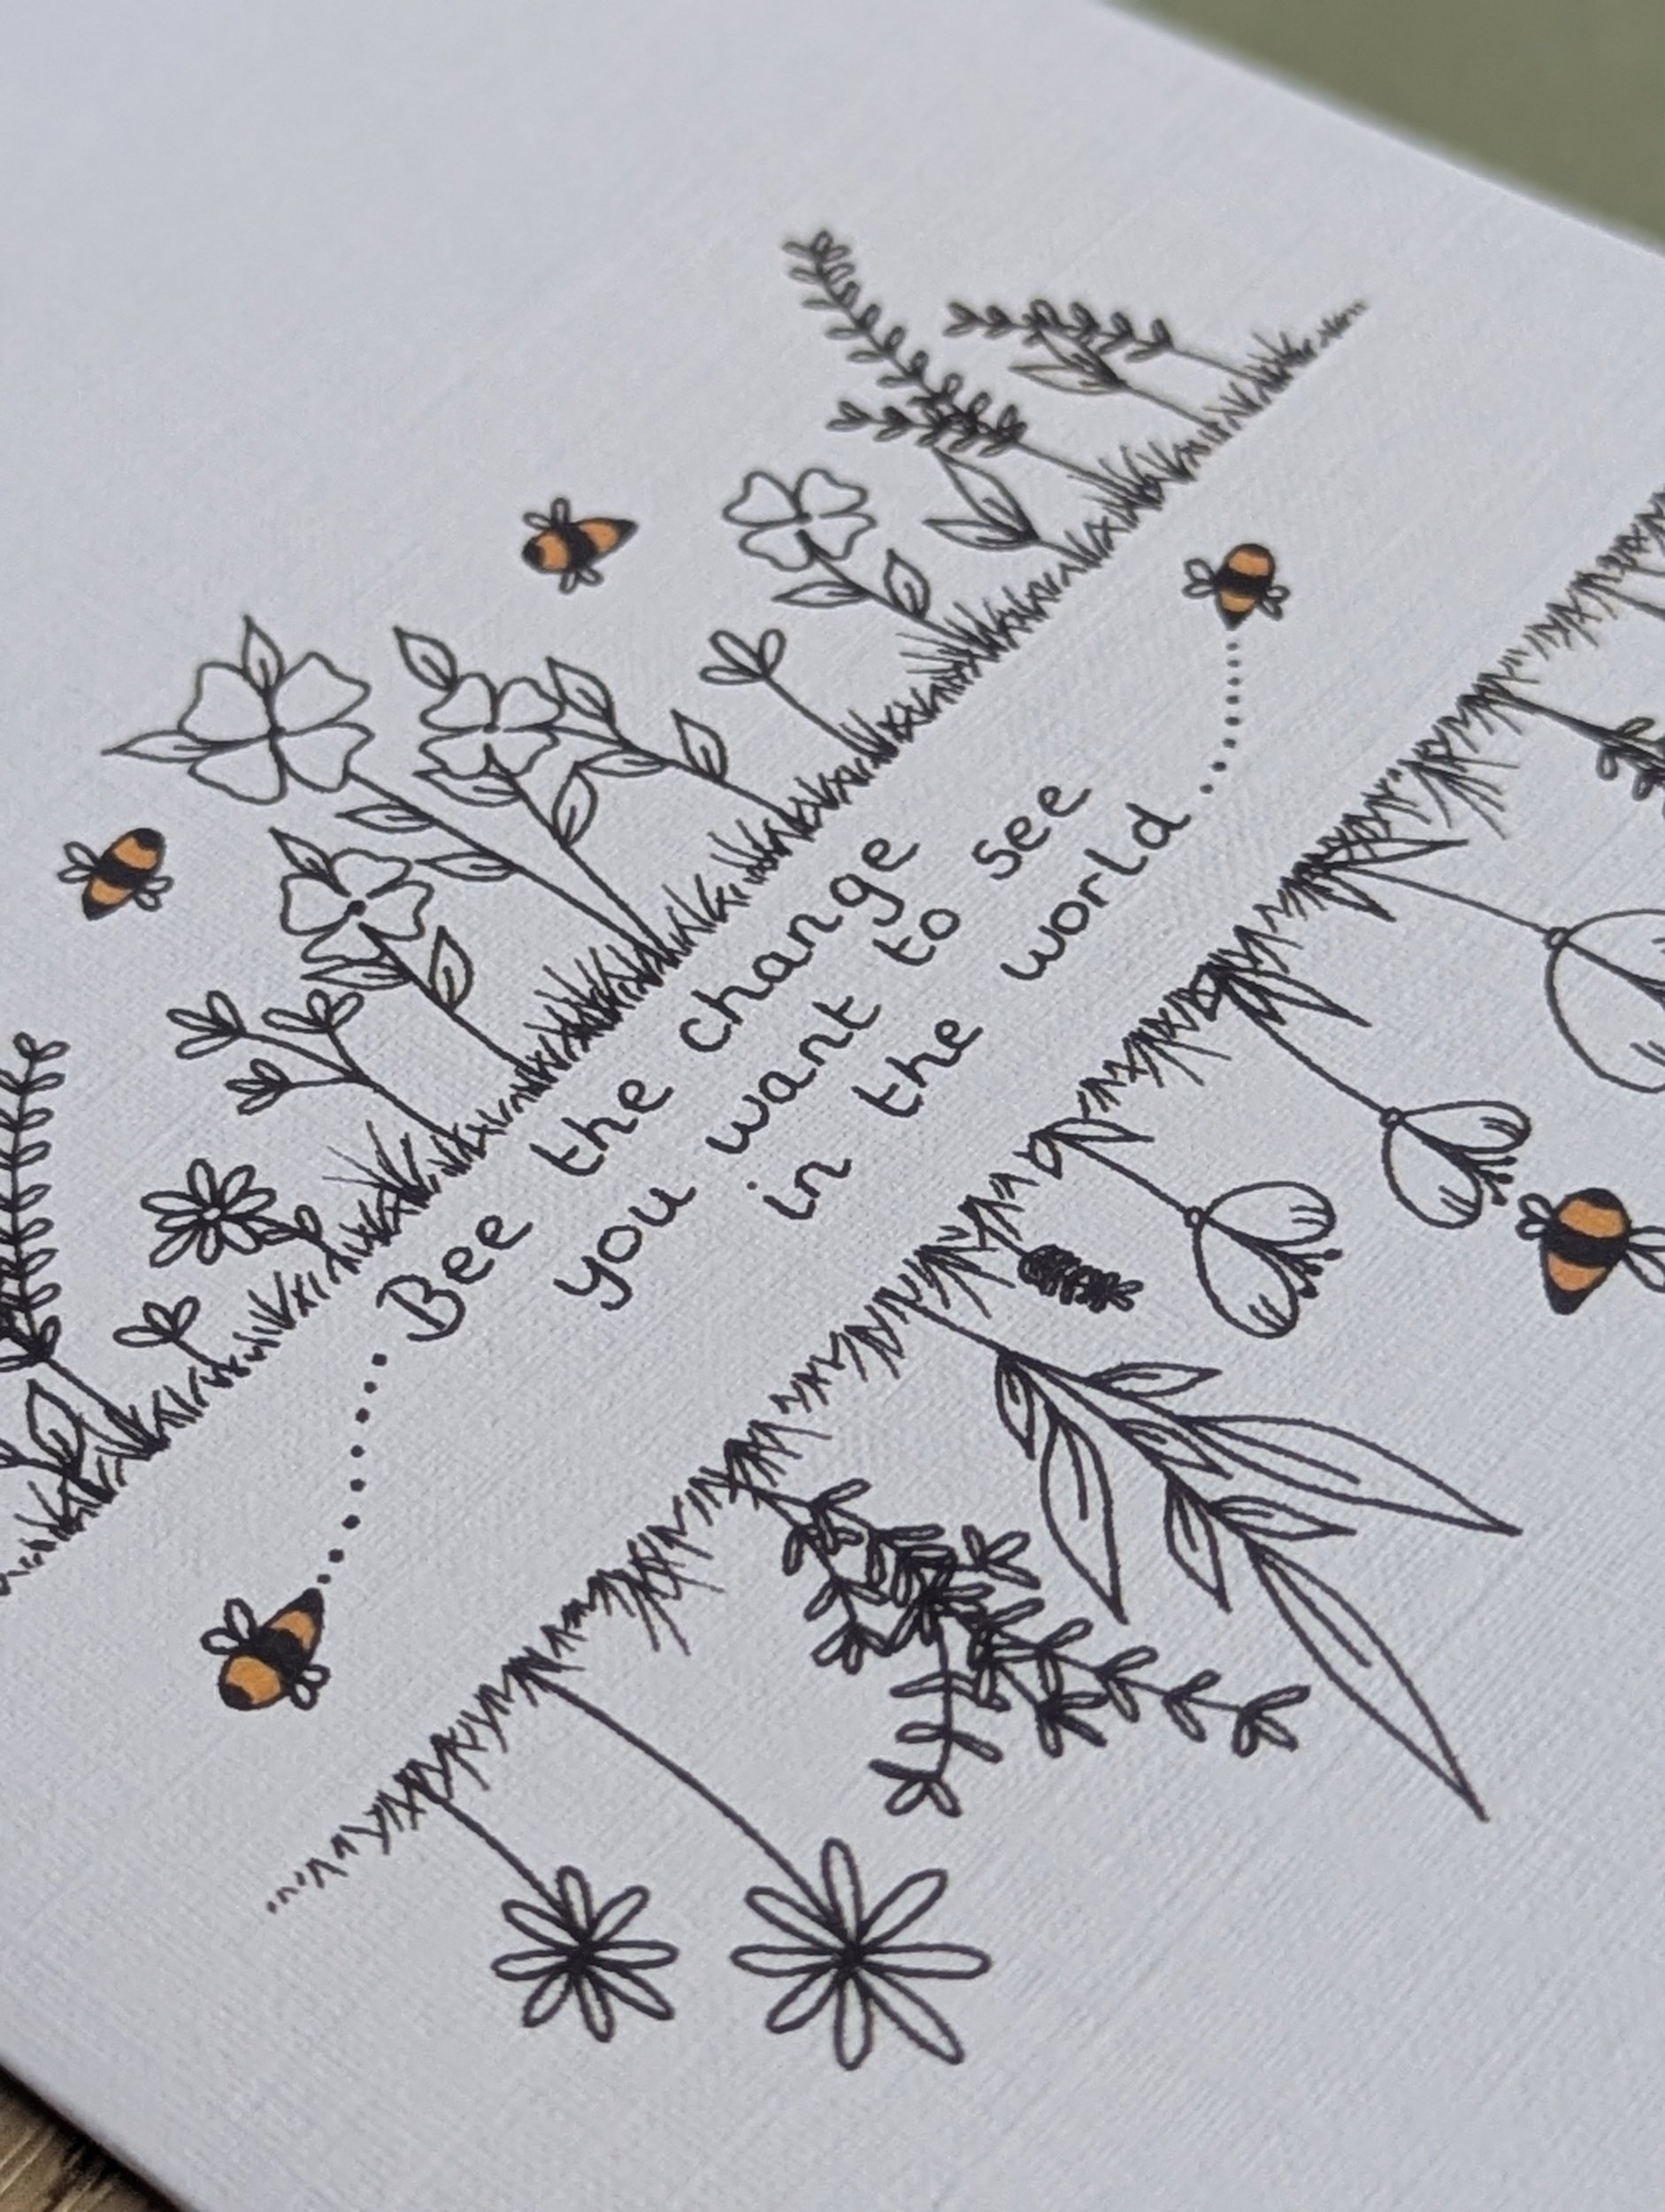 Bee the change
you want to see
in the world